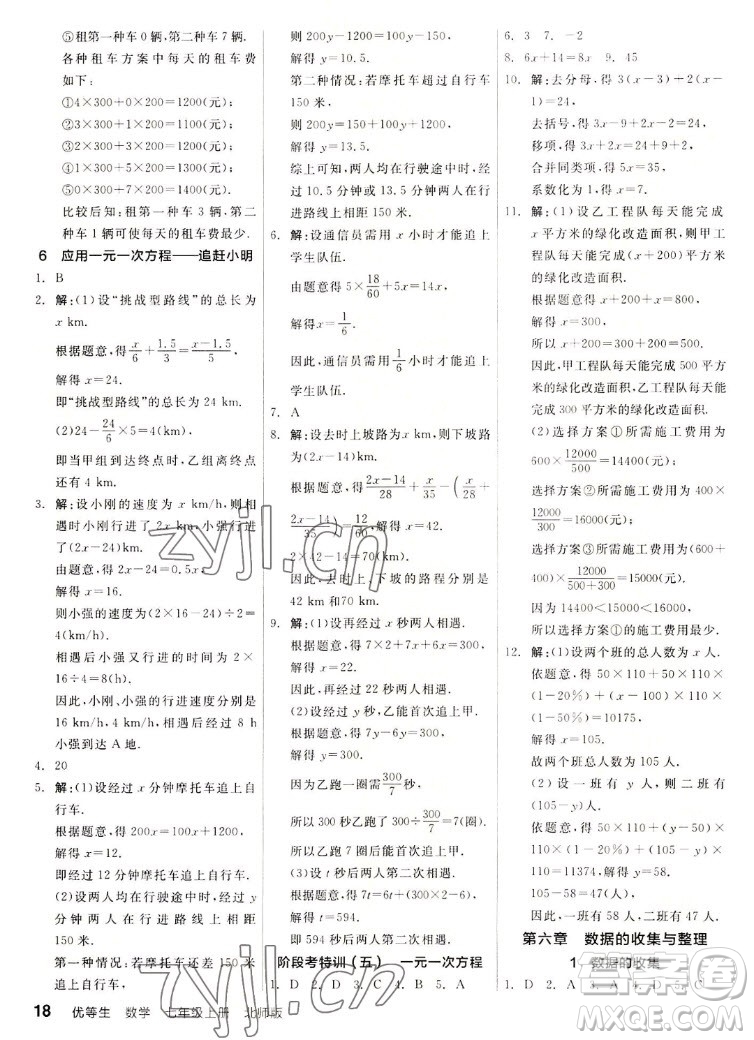 ⑤租第一种车0辆,第二种车7辆.
各种租车方案中每天的租车费
如下:
①4×300+0×200=1200(元);
②3×300+1×200=1100(元);
③2×300+3×200=1200(元);
④1×300+5×200=1300(元);
⑤0×300+7×200=1400(元);
比较后知:租第一种车3辆,第二
种车1辆可使每天的租车费最少.
6 应用一元一次方程——追赶小明
1. B
2. 解:(1)设“挑战型路线”的总长为
x km.
根据题意,得x/6+1.5/3=(x-1.5)/5.
解得 x=24.
即“挑战型路线”的总长为 24 km.
(2)24-24/6×5=4(km).
即当甲组到达终点时,乙组离终点
还有4 km.
3. 解:设小刚的速度为 x km/h,则相
遇时小刚走了 2x km,小强走了
(2x-24)km.
由题意,得 2x-24=0.5x.
解得 x=16.
则小强的速度为(2×16-24)÷2=
4(km/h).
相遇后小强又走的时间为 2×
16÷4=8(h).
因此,小刚、小强的速度分别为
16 km/h,4 km/h,相遇后经过 8 h
小强到达 A 地.
4. 20
5. 解:(1)设经过 x 分钟摩托车追上自
行车.
根据题意,得 200x=100x+1200.
解得 x=12.
即经过12分钟摩托车追上自行车.
(2)设两人在行驶途中时,经过 y
分钟两人在行进路线上相距
150米.
第一种情况:若摩托车还差 150 米
则 200y+150=100y+1200.
解得 y=10.5.
第二种情况:若摩托车超过自行车
150 米,
则 200y=150+100y+1200.
解得 y=13.5.
综上可知,两人均在行驶途中时,经
过 10.5 分钟或 13.5 分钟两人在行
进路线上相距 150 米.
6. 解:设通信员需用 x 小时才能追上
学生队伍.
由题意得 5×18/60+5x=14x.
解得x=1/6.
因此,通信员需用1/6小时才能追上
学生队伍.
7. A
8. 解:设去时上坡路为 x km,则下坡路
为(2x-14)km.
根据题意,得(2x-14)/28+x/35-(x/28+
(2x-14)/35)=12/60.解得 x=42.
2×42-14=70(km).
因此,去时上、下坡的路程分别为
42 km和70 km.
9. 解:(1)设再经过 x 秒两人相遇.
根据题意,得 7×2+7x+6x=300.
解得 x=22.
因此,再经过 22 秒两人相遇.
(2)设经过 y 秒,乙能第一次追上甲.
根据题意,得 7y-6y=300÷7.
解得 y=300/7.
因为乙跑一圈需300/7秒,
所以 300 秒乙跑了 300÷300/7=7(圈).
所以乙跑7圈后首次追上甲.
(3)设相遇的时间为 t 秒.
根据题意,得 7t=6t+(300×2-6).
解得 t=594.
即 594 秒后两人第二次相遇.
阶段考特训(五) 一元一次方程
1. D 2. C 3. D 4. A 5. D
6. 3 7. -2
8. 6x+14=8x 9. 45
10. 解:去分母,得 3(x-3)+2(x-
1)=24,
去括号,得 3x-9+2x-2=24,
移项,得 3x+2x=24+9+2,
合并同类项,得 5x=35,
系数化为 1,得 x=7.
11. 解:(1)设乙工程队每天能完成
x平方米的绿化改造面积,则甲工
程队每天能完成(x+200)平方米
的绿化改造面积.
根据题意,得 x+200+x=800,
解得 x=300.
所以 x+200=300+200=500.
因此,甲工程队每天能完成 500 平方
米的绿化改造面积,乙工程队每天能
完成 300 平方米的绿化改造面积.
(2)选择方案①所需施工费用为
600×12000/500=14400(元),
选择方案②所需施工费用为 400
×12000/300=16000(元),
选择方案③所需施工费用为(600
+400)×12000/(500+300)=15000(元).
因为 14400<15000<16000,
所以选择方案①的施工费用最少.
12. 解:(1)设两个班的总人数为x人.
依题意,得 50×110+50×110×
(1-20%)+(x-50-50)×110×
(1-50%)=10175,
解得 x=105.
故两个班总人数为 105 人.
(2)设一班有 y 人,则二班有
(105-y)人.
依题意,得 50×110+(y-50)×
110×(1-20%)+(105-y)×
110=11374,
解得 y=58.
105-58=47.
因此,一班有 58 人,二班有 47 人.
第六章 数据的收集与整理
1 数据的收集
1. D 2. A 3. D 4. D 5. C
18 优等生 数学 七年级上册 北师版
zyjl.cn
zyjl.cn